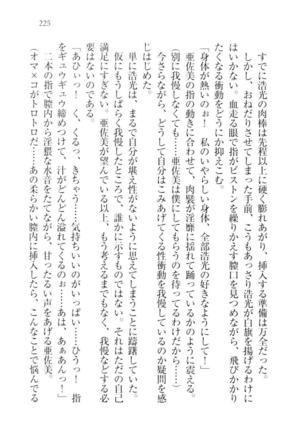 225
すでに浩光の肉棒は先程以上に硬く膨れあがり、挿入する準備は万全だった。
しかし、おねだりさせてしまった手前、こうもあっさり浩光が白旗を揚げるわけに
はいかない。血走る眼で指がピストンを繰りかえす膣口を見つめながら、飛びかかり
たくなる衝動をどうにか抑えこむ。
「身体が熱いのぉ! 私のいやらしい身体、全部浩光の好きなようにしてぇ!」
亜佐美の指の動きに合わせて、肉襞が淫靡に揺れて踊っているかのように震える。
(別に我慢しなくても……亜佐美は僕にしてもらうのを待ってるわけだから……)
今さらながら、どうして自分はこみあげてくる性衝動を我慢しているのか疑問を感
じはじめた。
単に浩光は、まるで自分が堪え性がないように思えてしまうことに躊躇していた。
仮にもうしばらく我慢したところで、誰かに示すものではない。それはただの自己
満足にすぎない。亜佐美が望んでいる以上、もう考えるまでもなく、我慢などする必
要はないのである。
「あひぃっ! く、くるっ、きちゃう……気持ちいいのがいっぱい……ひっ! 指
をギュウギュウ締めつけて、汁がどんどん溢れてくるのぉ……あは、あぁあんっ!」
二本の指で膣内から淫猥な水音をたてながら、甘ったるい声をあげる亜佐美。
(オマ×コがトロトロだ……あの柔らかい膣内に挿入したら、こんなことで悩んでる